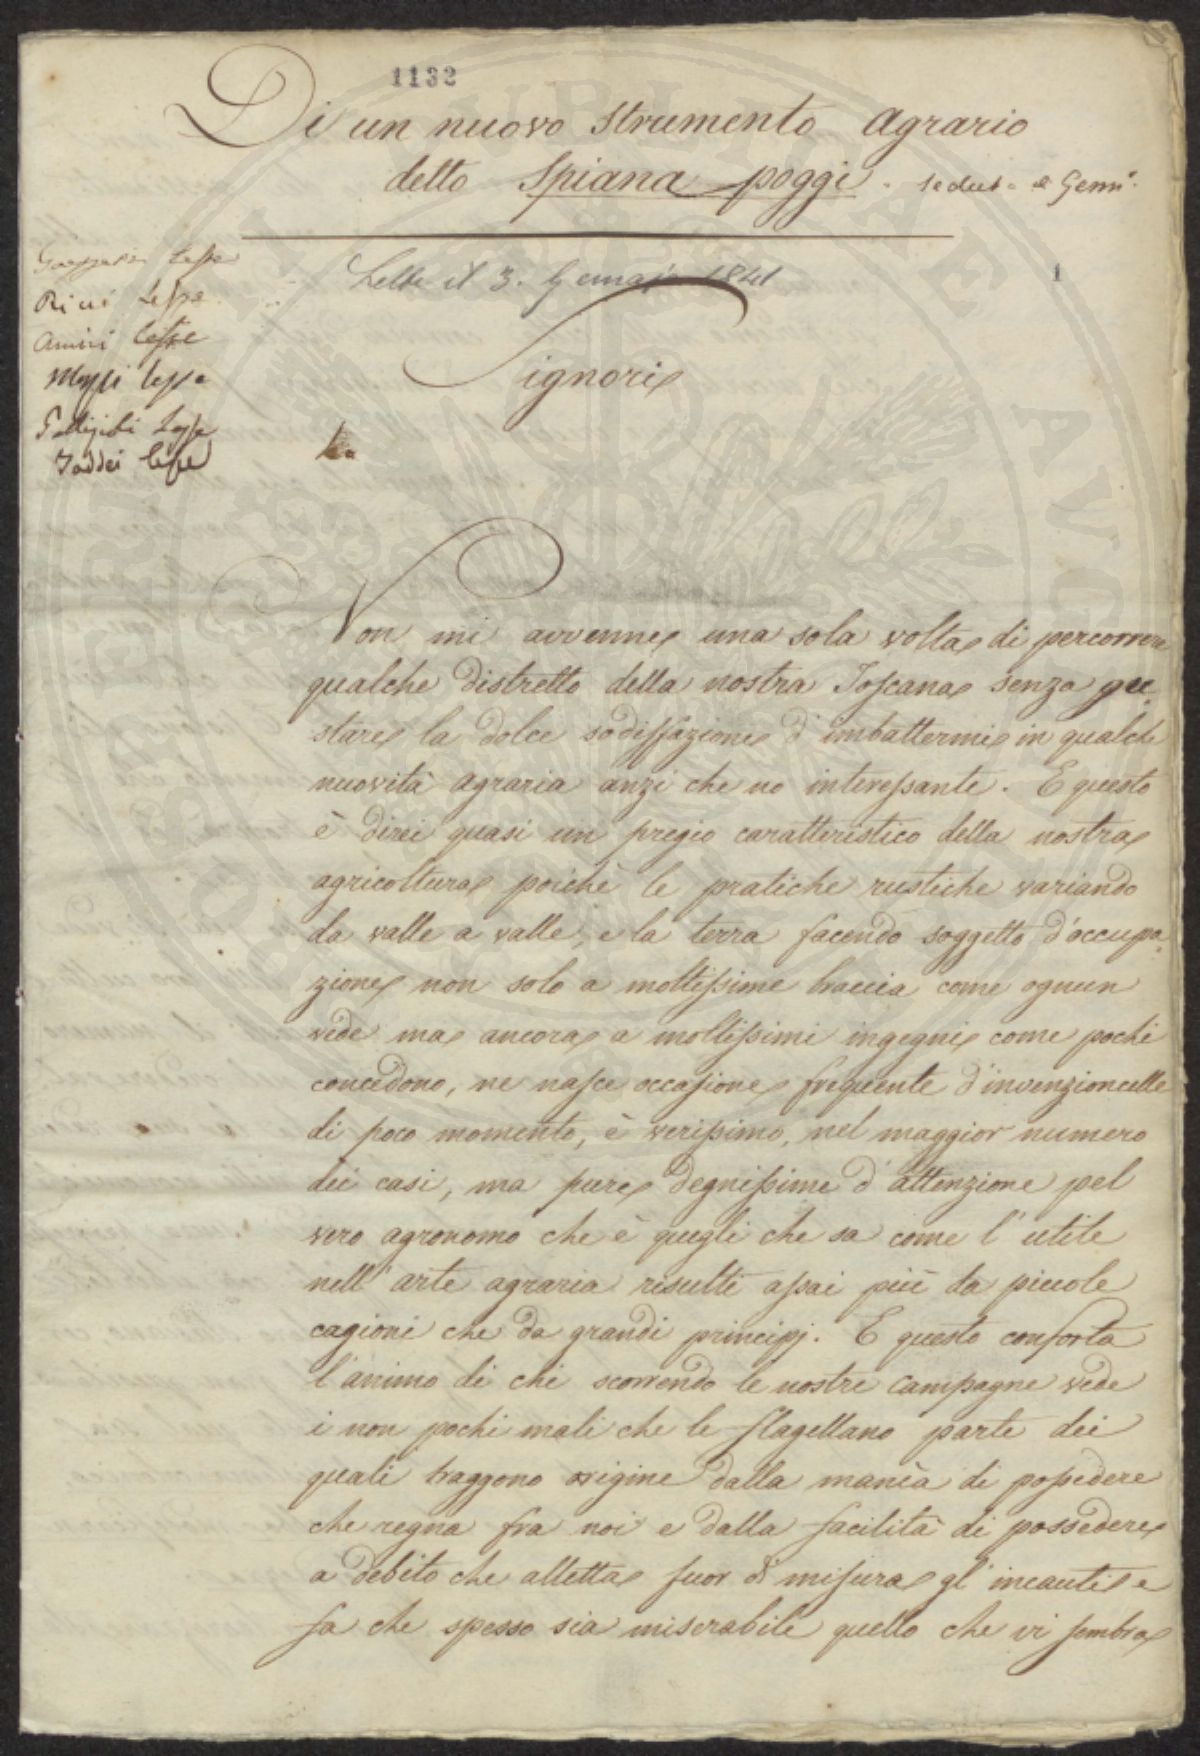 1132
Di un nuovo Strumento Agrario
detto Spiana poggi.
1
Letta il 3. Gennajo 1841
Ricci Lesse
Amici Lesse
Taddei lesse
Signori
Non mi avvenne una sola volta di percorrere
qualche distretto della nostra Toscana senza gu-
stare la dolce sodisfazione d'imbattermi in qualche
nuovità agraria anzi che no interessante. E questo
è direi quasi un pregio caratteristico della nostra
agricoltura poichè le pratiche rustiche variando
da valle a valle, e la terra facendo soggetto d'occupa-
zione non solo a moltissime braccia come ognun
vede ma ancora a moltissimi ingegni come pochi
concedono, ne nasce occasione frequente d'invenzioncelle
di poco momento, è verissimo, nel maggior numero
dei casi, ma pure degnissime d'attenzione pel
vero agronomo che è quegli che sa come l'utile
nell'arte agraria risulti assai più da piccole
cagioni che da grandi principj. E questo conforta
l'animo di chi scorrendo le nostre campagne vede
i non pochi mali che le flagellano parte dei
quali traggono origine dalla manìa di possedere
che regna fra noi e dalla facilità di possedere
a debito che alletta fuor di misura gl'incauti e
fa che spesso sia miserabile quello che vi sembra